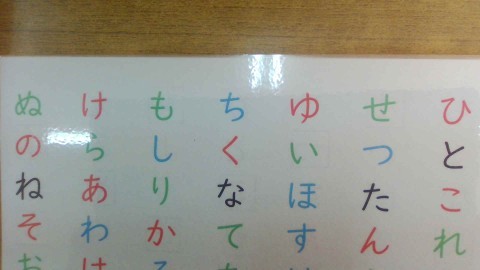 ひとこれ
せつたん
ゆいほす
ちくなて
もしりか
けらあわ
ぬのねそ